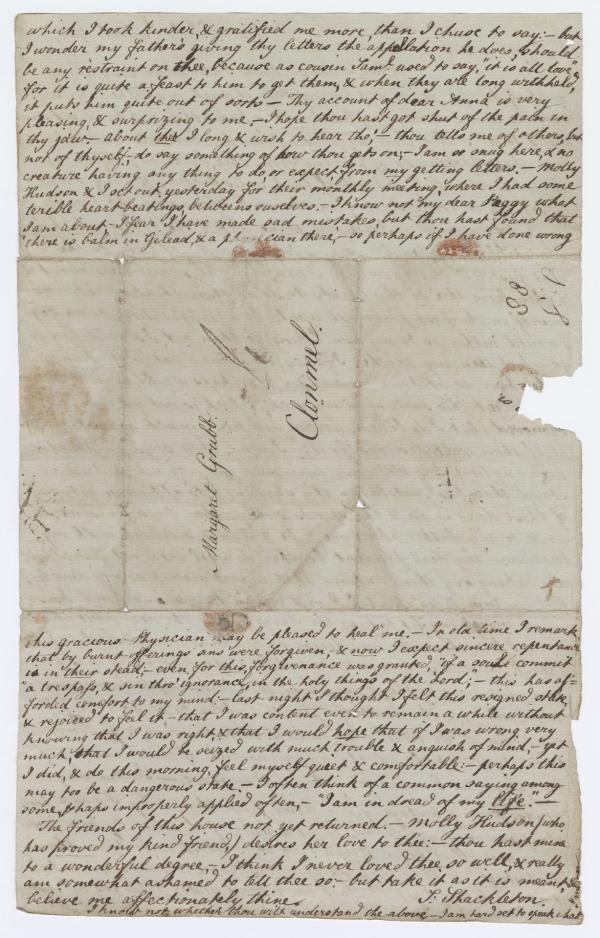 which I took kinder, & gratified me more, than I chuse to say:- but
I wonder my father's giving thy letters the appellation he does, should
be any restraint on thee, because as cousin Saml. used to say, "it is all love",
for it is quite a feast to him to get them, & when they are long withheld,
it puts him quite out of sorts - Thy account of dear Anna is very
pleasing, & surprizing to me, - I hope thou hast got shut of the pain in
thy jaw - about thee I long & wish to hear tho', - thou tells me of others, but
not of thyself, - do say something of how thou gets on; - I am so snug here, & no
creature having any thing to do, or expect from my getting letters. - Molly
Hudson & I set out yesterday for their monthly meeting, where I had some
terible heart-beatings, between ourselves. - I know not my dear Peggy what
I am about - I fear I have made sad mistakes, but thou hast found that
"there is balm in Gilead, & a physician there", - so perhaps if I have done wrong
Margaret Grubb.
Clonmel.
this gracious Physician may be pleased to heal me. - In old time I remark
that by burnt offerings sins were forgiven, & now I expect sincere repentance
is in their stead; - even for this, forgiveness was granted, "if a soul commit
"a trespass, & sin thro' ignorance, in the holy things of the Lord; - this has af-
forded comfort to my mind - last night I thought I felt this resigned state,
& rejoiced to feel it - that I was content even to remain a while without
knowing that I was right & that I would hope that if I was wrong very
much, that I would be seized with much trouble & anguish of mind, - yet
I did, & do this morning, feel myself quiet & comfortable: - perhaps this
may too be a dangerous state - I often think of a common saying among
some, perhaps improperly applied often, - "I am in dread of my life". -
The friends of this house not yet returned. - Molly Hudson (who
has proved my kind friend) desires her love to thee: - thou hast mine
to a wonderful degree, - I think I never loved thee so well, & really
am somewhat ashamed to tell thee so: - but take it as it is meant &
believe me affectionately thine
S: Shackleton.
I know not whether thou wilt understand the above - I am hard set to speak what